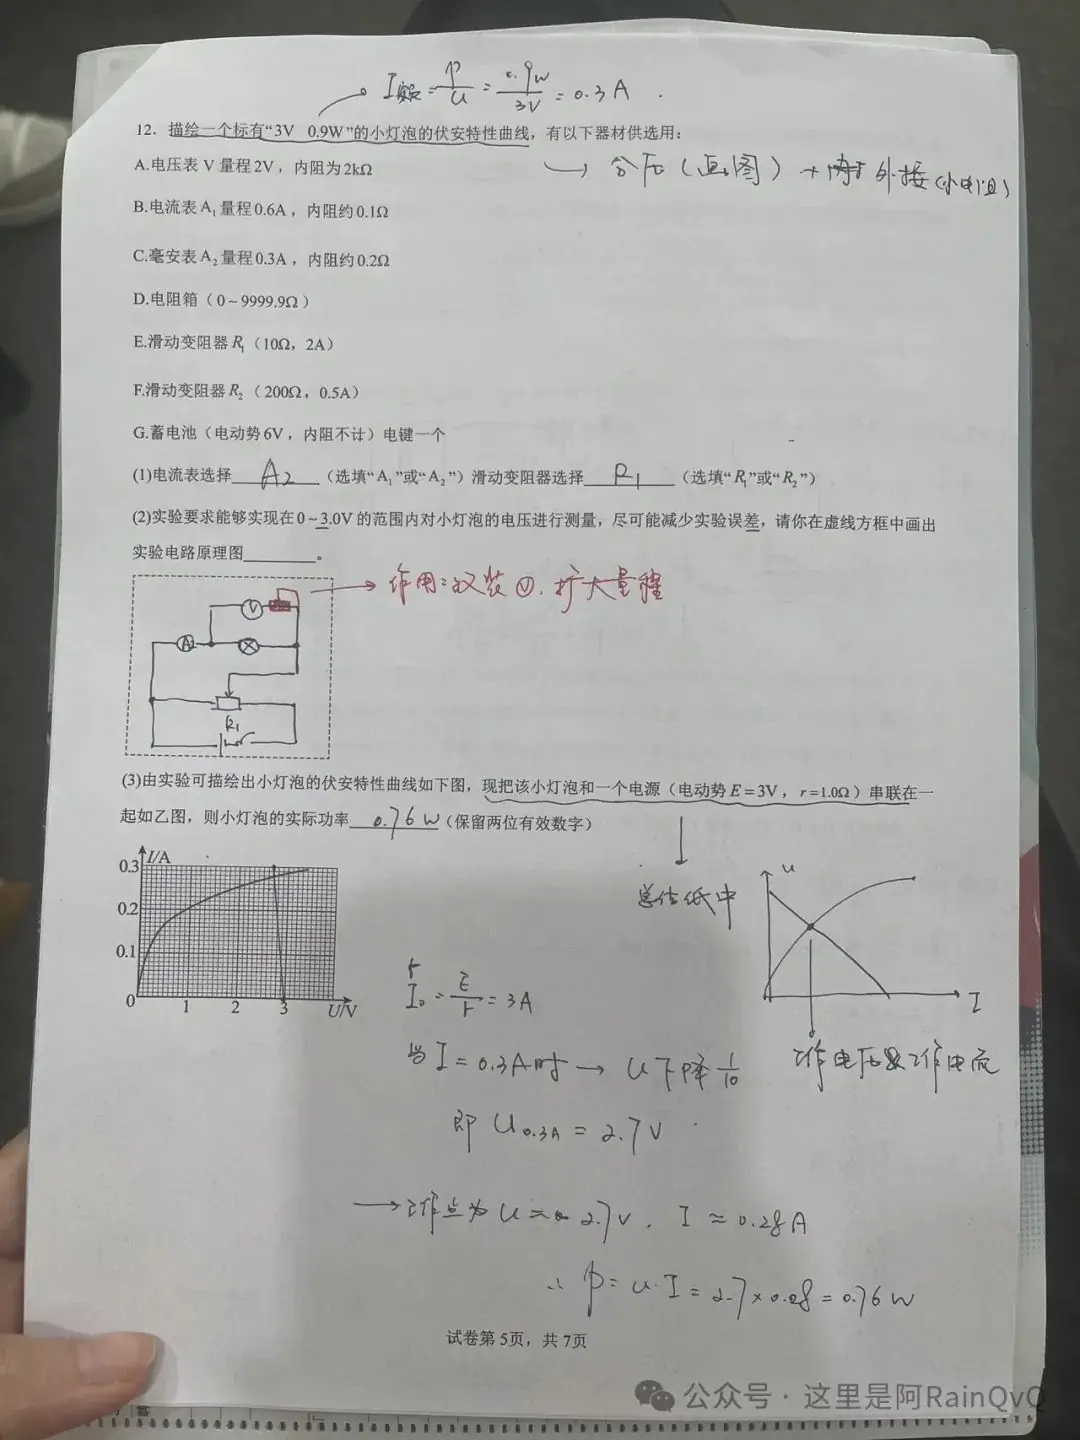 I额定 = P/U = 0.9W/3V = 0.3A .
12．描绘一个标有“3V 0.9W”的小灯泡的伏安特性曲线，有以下器材供选用：
→ 分压（画图）+ 外接（小电阻）
A.电压表 V 量程2V，内阻为2kΩ
B.电流表 A₁ 量程0.6A，内阻约0.1Ω
C.毫安表 A₂ 量程0.3A，内阻约0.2Ω
D.电阻箱（0~9999.9Ω）
E.滑动变阻器 R₁（10Ω，2A）
F.滑动变阻器 R₂（200Ω，0.5A）
G.蓄电池（电动势6V，内阻不计）电键一个
(1)电流表选择 A₂ （选填“A₁”或“A₂”）滑动变阻器选择 R₁ （选填“R₁”或“R₂”）
(2)实验要求能够实现在0~3.0V的范围内对小灯泡的电压进行测量，尽可能减少实验误差，请你在虚线方框中画出
实验电路原理图________。
→ 作用：改装Ⓥ．扩大量程
V
A
R₁
(3)由实验可描绘出小灯泡的伏安特性曲线如下图，现把该小灯泡和一个电源（电动势E=3V，r=1.0Ω）串联在一
起如乙图，则小灯泡的实际功率 0.76W （保留两位有效数字）
I/A
0.3
0.2
0.1
0 1 2 3 U/V
U
I
I₀ = E/r = 3A
当 I = 0.3A时 → U下降 1/10
工作电压及工作电流
即 U0.3A = 2.7V
→ 工作点为 U≈2.7V，I≈0.28A
∴ P = U·I = 2.7×0.28 = 0.76W
试卷第5页，共7页
公众号 · 这里是阿RainQvQ